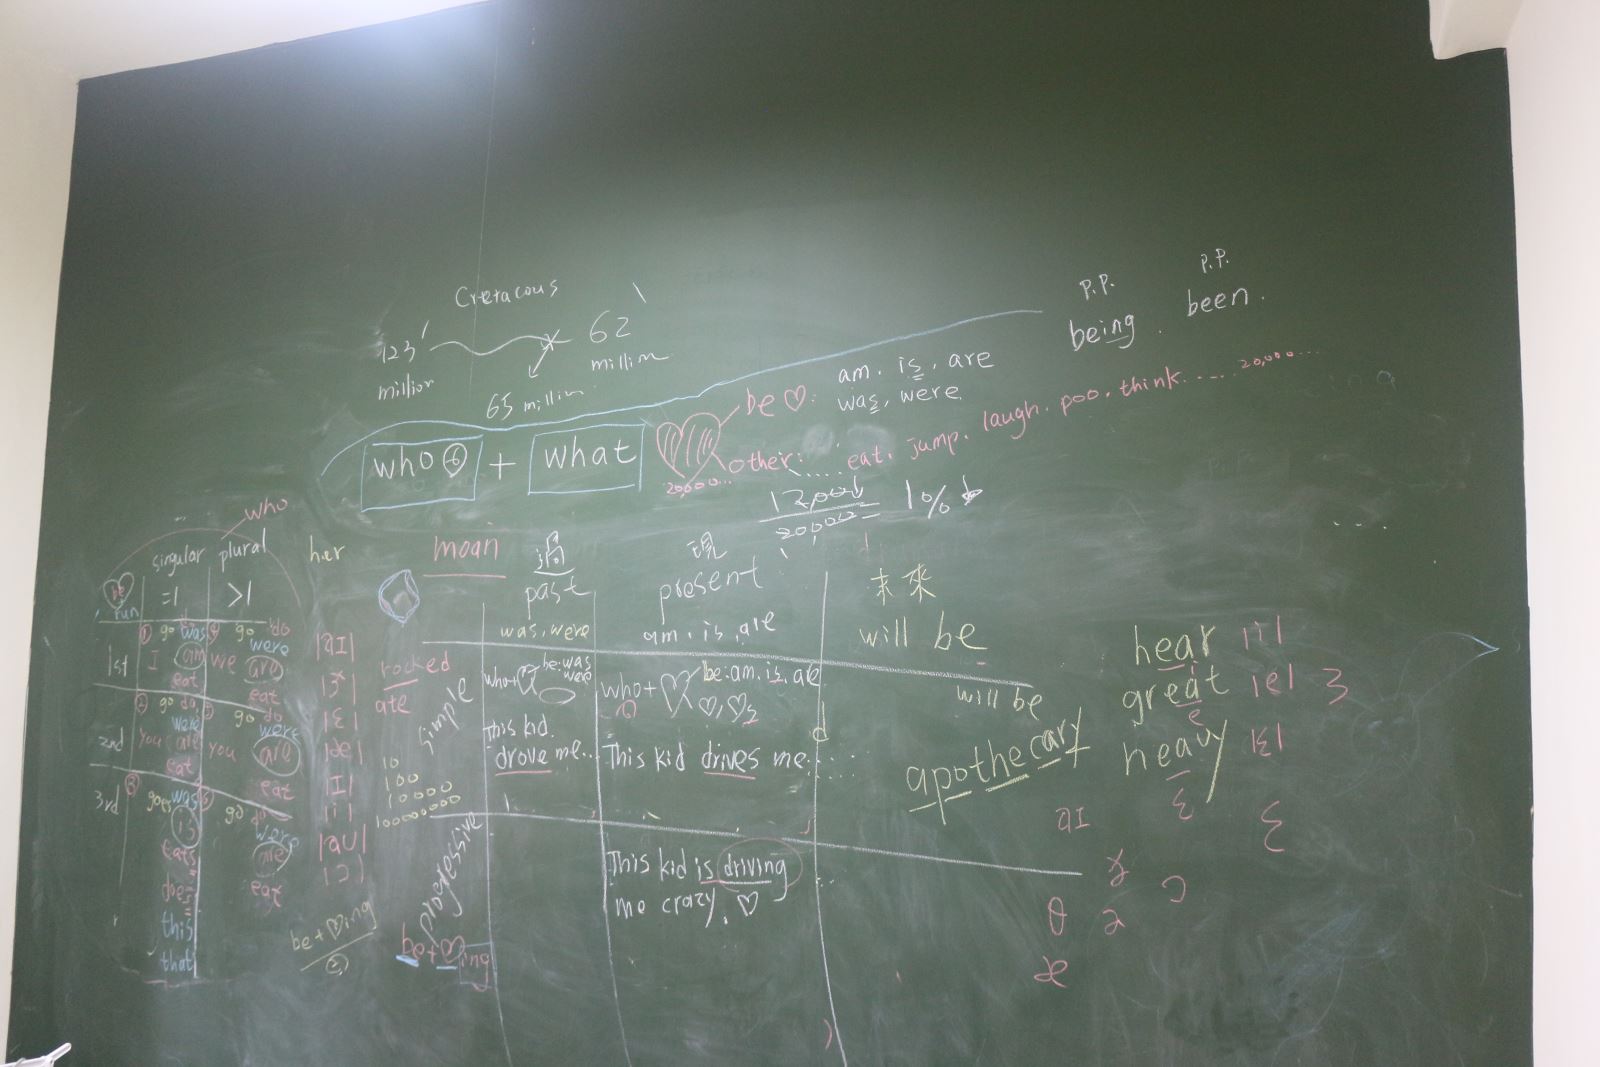 Cretacous
123 62
million million
65 million
P.P. P.P.
being . been .
be ♡: am. is. are
was, were
who ⑥ + what
other: ..... eat, jump, laugh. poo, think ..... 20,000...
20,000...
1%
who
singular plural
her
moan
past
現
present
未來
be
run
=1 >1
was, were
am. is, are
will be
1st
① go was
I am
eat
④ go do
were
we are
eat
2nd
② go do
were
you are
eat
go do
were
you are
eat
3rd
③ goes was
is
eats
does
this
that
go do
were
are
eat
|aɪ|
|ɛ|
|ɪ|
|i|
|aʊ|
|ɔ|
rocked
ate
10
100
10000
100000000
simple
who+♡ be: was
were
This kid.
drove me...
who+♡ be: am. is. are
This kid drives me.....
will be
progressive
be+♡ing
be+♡ing
This kid is driving
me crazy. ♡
apothecary
hear |i|
great |e| 3
e
heavy |ɛ|
aɪ ɛ ɛ
ɔ
θ
æ